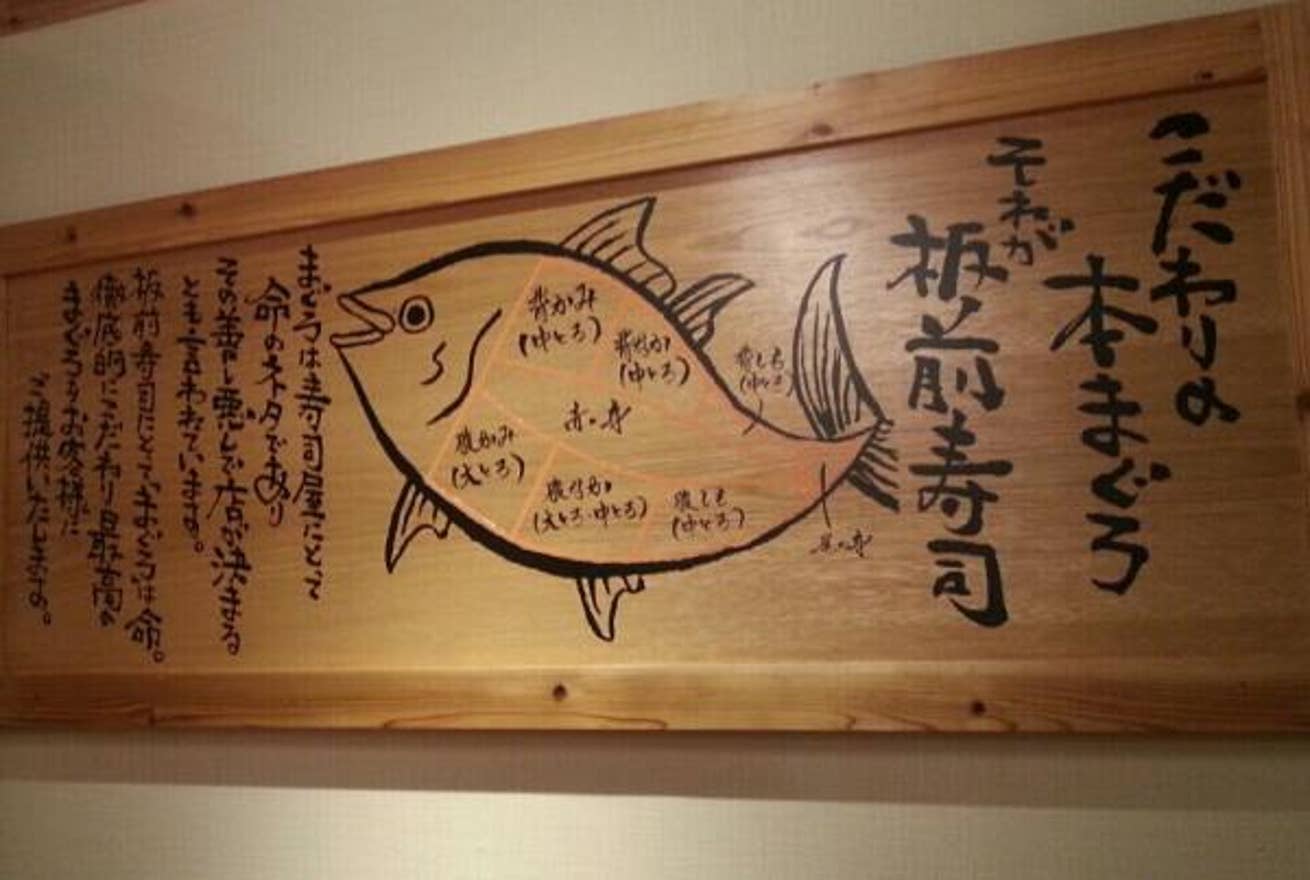 こだわりの
本まぐろ
それが
板前寿司
背かみ
(中とろ)
背なか
(中とろ)
背しも
(中とろ)
赤の身
腹かみ
(大とろ)
腹なか
(大とろ・中とろ)
腹しも
(中とろ)
まぐろは寿司屋にとって
命のネタであり
その善し悪しで店が決まる
とも言われています。
板前寿司にとってまぐろは命。
徹底的にこだわり最高の
まぐろをお客様に
ご提供いたします。